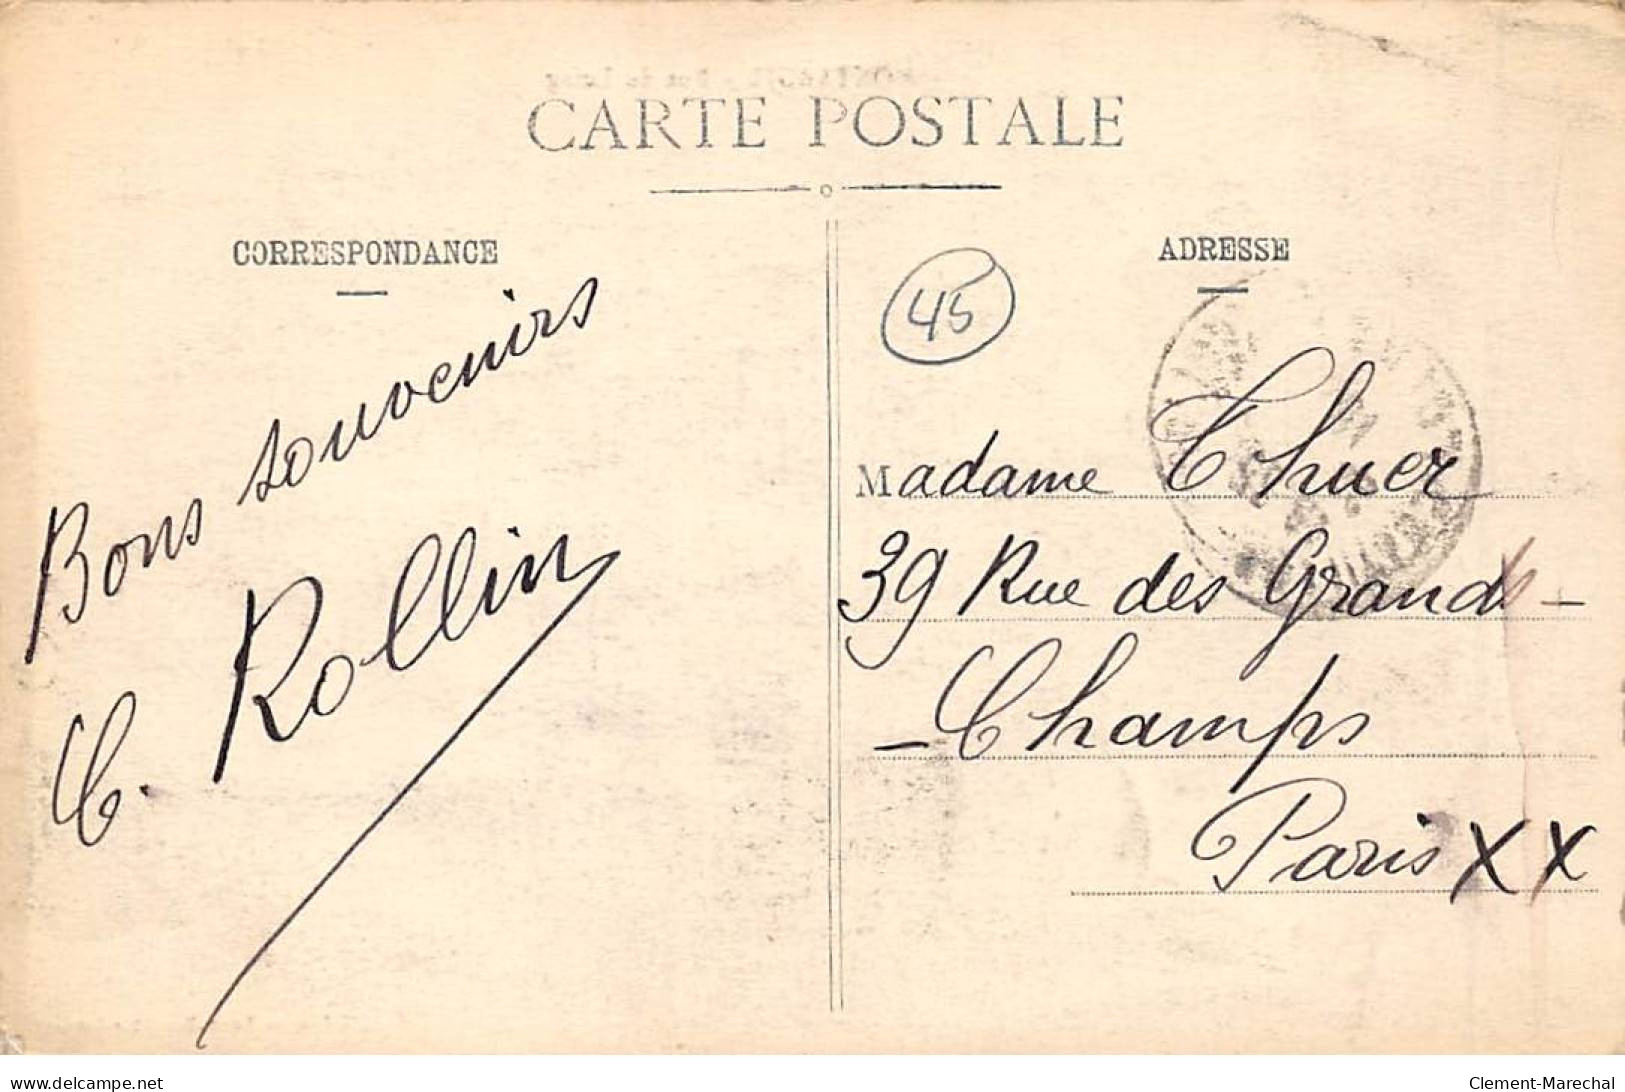 CARTE POSTALE
CORRESPONDANCE
Bons souvenirs
C. Rollin
ADRESSE
45
Madame Thuer
39 Rue des Grands-
-Champs
Paris XX
www.delcampe.net
Clement-Marechal